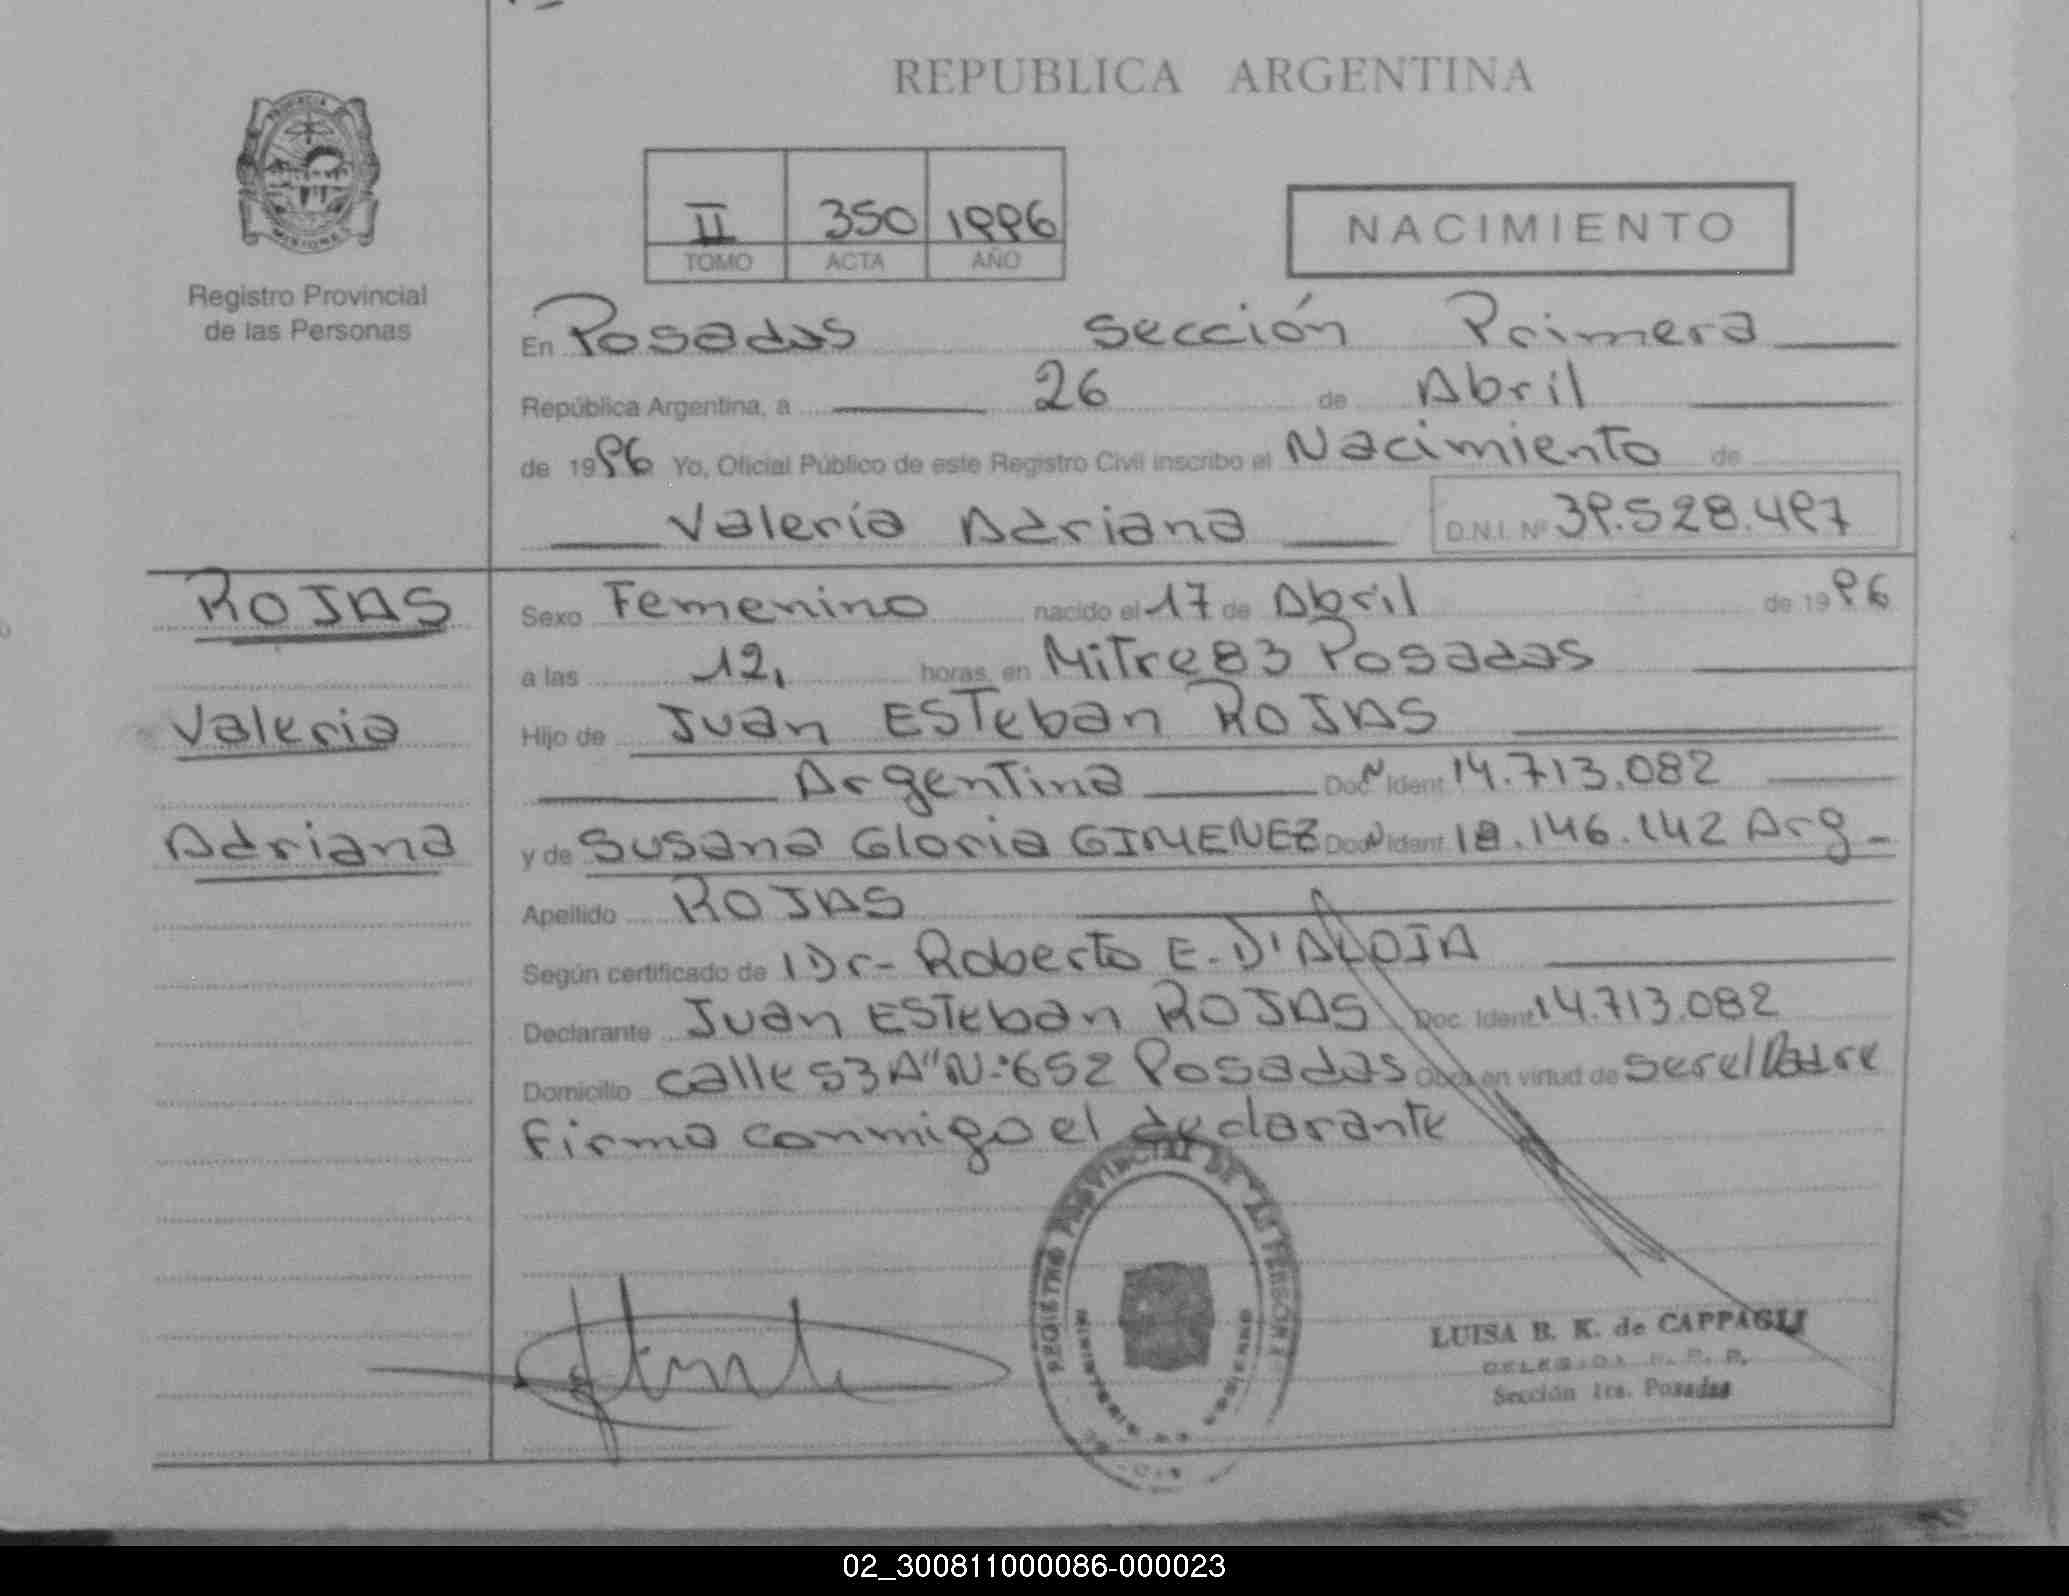 REPUBLICA ARGENTINA
PROVINCIA
MISIONES
II 350 1996
TOMO ACTA AÑO
NACIMIENTO
Registro Provincial
de las Personas
En Posadas Sección Primera
República Argentina, a 26 de Abril
de 1996 Yo, Oficial Público de este Registro Civil inscribo el Nacimiento de
Valeria Adriana D.N.I. Nº 39.528.497
ROJAS
Valeria
Adriana
Sexo Femenino nacido el 17 de Abril de 1996
a las 12, horas, en Mitre 83 Posadas
Hijo de Juan Esteban ROJAS
Argentina Doc. N Ident. 14.713.082
y de Susana Gloria GIMENEZ Doc. N Ident. 18.146.142 Arg_
Apellido ROJAS
Según certificado de Dr- Roberto E. D'ALOJA
Declarante Juan Esteban ROJAS Doc. Ident. 14.713.082
Domicilio calle 53 A" N-º 652 Posadas Obra en virtud de ser el Padre
Firma conmigo el declarante
REGISTRO PROVINCIAL DE LAS PERSONAS
LUISA B. K. de CAPPAGLI
Sección 1ra. Posadas
02_300811000086-000023